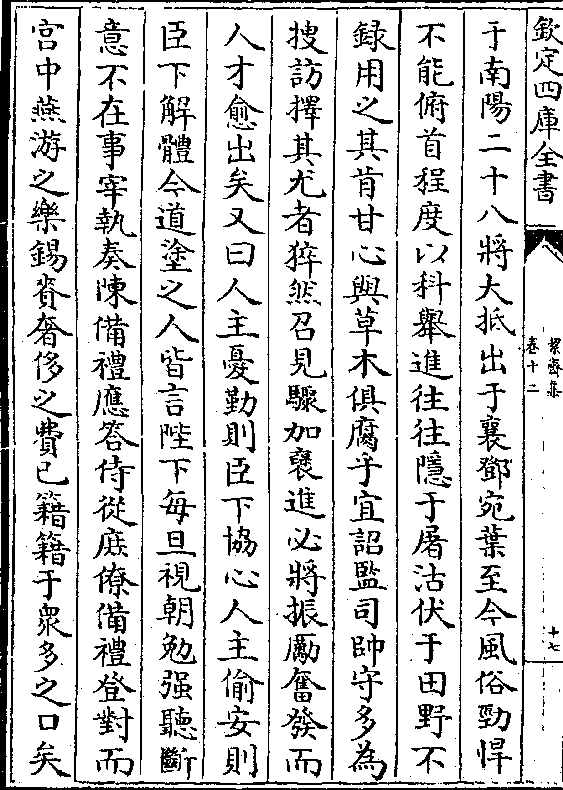 欽定四庫全書
絜齋集
卷十二
十七
于南陽二十八將大抵出于襄鄧宛葉至今風俗勁悍
不能俯首程度以科舉進往往隱于屠沽伏于田野不
録用之其肯甘心與草木俱腐乎宜詔監司帥守多為
搜訪擇其尤者猝然召見驟加襃進必將振勵奮發而
人才愈出矣又曰人主憂勤則臣下協心人主偷安則
臣下解體今道塗之人皆言陛下每旦視朝勉强聽斷
意不在事宰執奏陳備禮應答侍從庶僚備禮登對而
宫中燕游之樂錫賚奢侈之費已籍籍于衆多之口矣